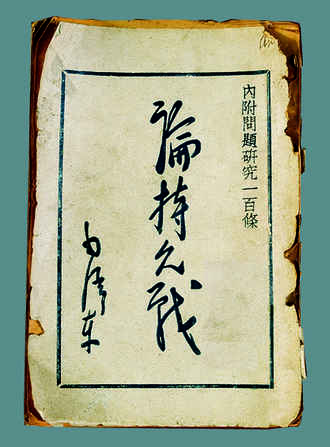 內附問題研究一百條
論持久戰
毛澤東